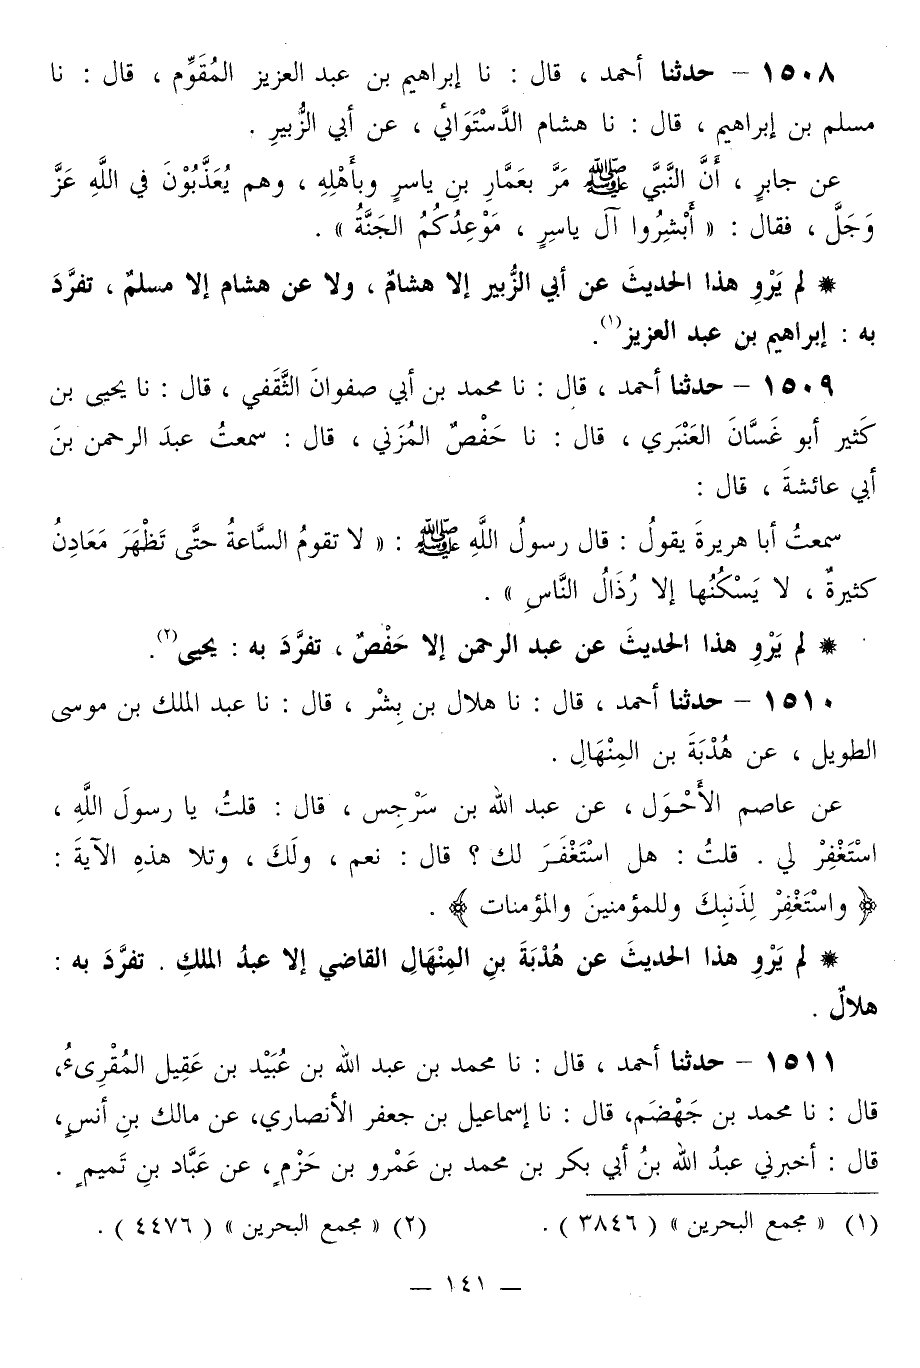 ١٥٠٨ – حدثنا أحمد ، قال : نا إبراهيم بن عبد العزيز المُقَوِّم ، قال : نا
مسلم بن إبراهيم ، قال : نا هشام الدَّسْتَوَائي ، عن أبي الزُّبيرِ .
عن جابرٍ ، أَنَّ النَّبيَّ ﷺ مَرَّ بعَمَّارِ بنِ ياسرٍ وبأَهْلِهِ ، وهم يُعَذَّبُوْنَ في اللَّهِ عَزَّ
وَجَلَّ ، فقال : « أَبْشِرُوا آلَ ياسِرٍ ، مَوْعِدُكُمُ الجَنَّةُ » .
* لم يَرْوِ هذا الحديثَ عن أبي الزُّبير إلا هشامٌ ، ولا عن هشام إلا مسلمٌ ، تفرَّدَ
به : إبراهيم بن عبد العزيز(١).
١٥٠٩ – حدثنا أحمد ، قال : نا محمد بن أبي صفوانَ الثَّقَفي ، قال : نا يحيى بن
كَثير أبو غَسَّانَ العَنْبَري ، قال : نا حَفْصٌ المُزَني ، قال : سمعتُ عبدَ الرحمن بنَ
أبي عائشةَ ، قال :
سمعتُ أبا هريرةَ يقولُ : قال رسولُ اللَّهِ ﷺ : « لا تقومُ السَّاعةُ حتَّى تَظْهَرَ مَعَادِنُ
كثيرةٌ ، لا يَسْكُنُها إلا رُذَالُ النَّاسِ » .
* لم يَرْوِ هذا الحديثَ عن عبد الرحمن إلا حَفْصٌ ، تفرَّدَ به : يحيى(٢).
١٥١٠ – حدثنا أحمد ، قال : نا هلال بن بِشْر ، قال : نا عبد الملك بن موسى
الطويل ، عن هُدْبَةَ بن المِنْهَالِ .
عن عاصم الأَحْوَل ، عن عبد الله بن سَرْجِس ، قال : قلتُ يا رسولَ اللَّهِ ،
اسْتَغْفِرْ لي . قلتُ : هل اسْتَغْفَرَ لك ؟ قال : نعم ، ولَكَ ، وتلا هذهِ الآيةَ :
﴿ واسْتَغْفِرْ لِذَنبِكَ وللمؤمنينَ والمؤمنات ﴾ .
* لم يَرْوِ هذا الحديثَ عن هُدْبَةَ بنِ المِنْهَالِ القاضي إلا عبدُ الملكِ . تفرَّدَ به :
هلالٌ .
١٥١١ – حدثنا أحمد ، قال : نا محمد بن عبد الله بن عُبَيْد بن عَقِيل المُقْرِىءُ،
قال : نا محمد بن جَهْضَم، قال : نا إسماعيل بن جعفر الأنصاري، عن مالك بنِ أنسٍ،
قال : أخبرني عبدُ الله بنُ أبي بكر بن محمد بن عَمْرو بن حَزْمٍ، عن عَبَّاد بنِ تَميمٍ .
(١) « مجمع البحرين » ( ٣٨٤٦ ) . (٢) « مجمع البحرين » ( ٤٤٧٦ ) .
— ١٤١ —